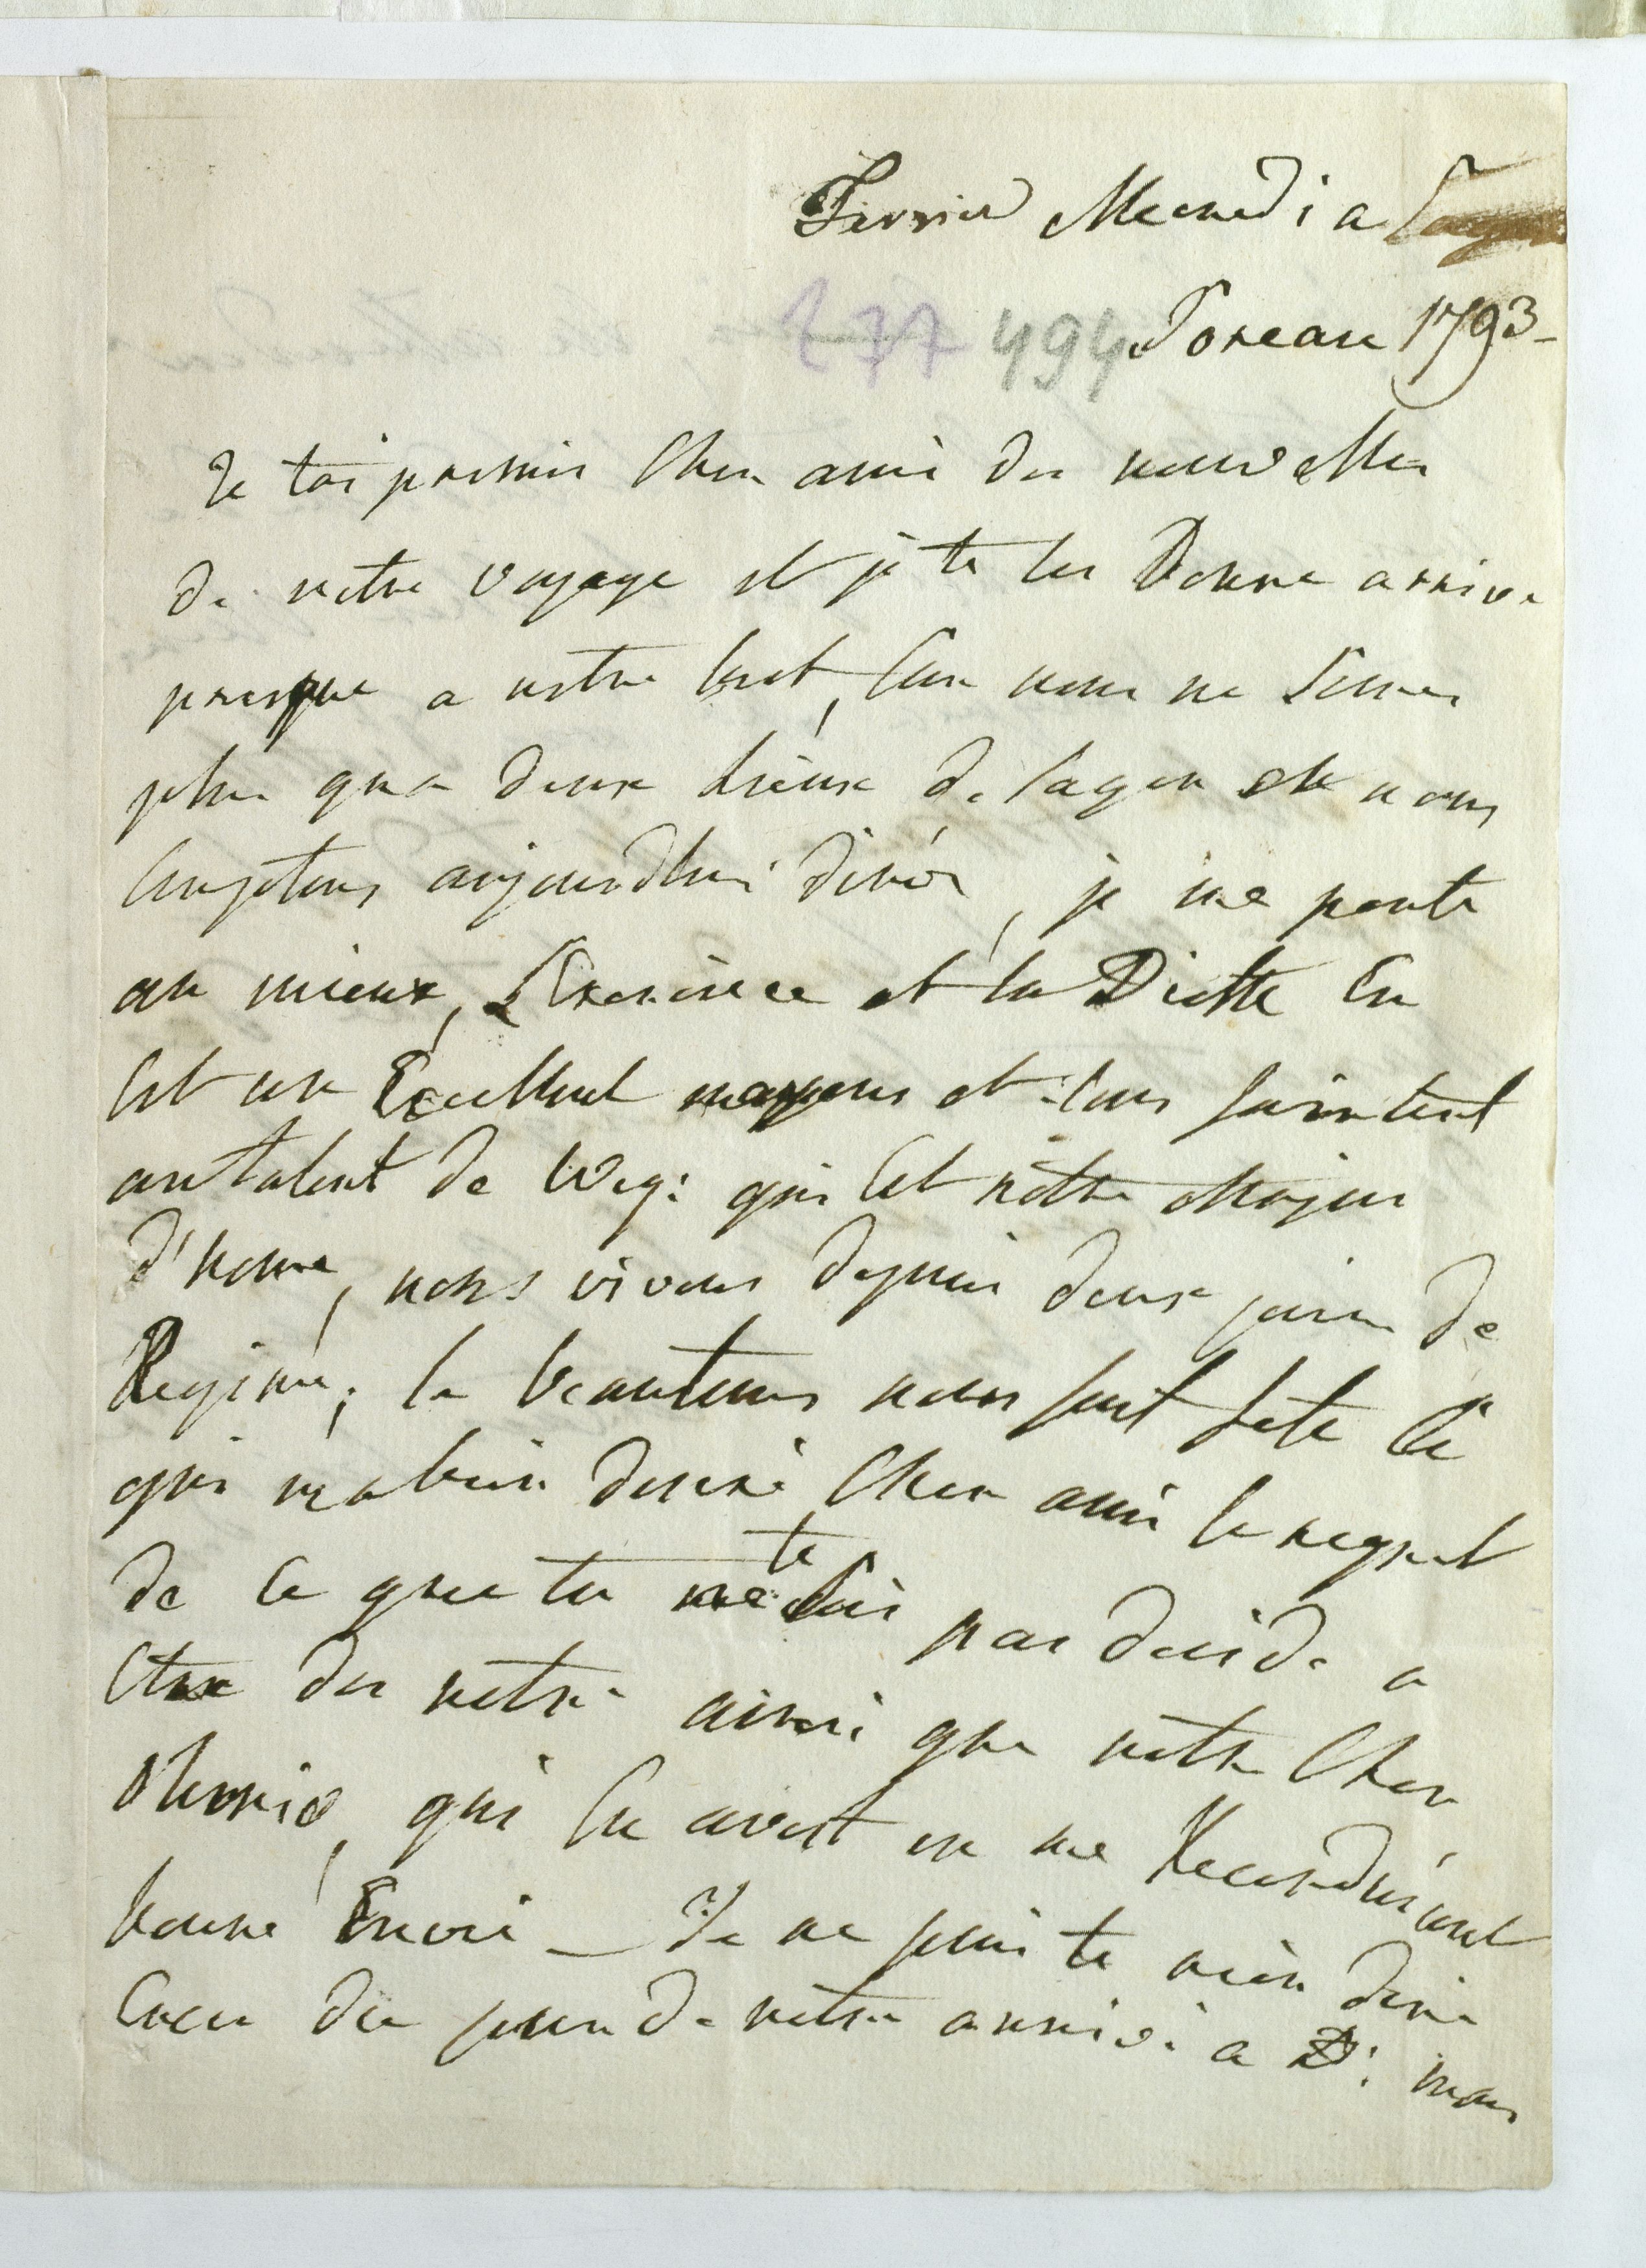 Fevrier Mecredi a Sagan
277 494 Soreau 1793 -
Je tai promis Cher ami des nouvelles
de notre voyage et je te les Donne arrive
presque a notre but, Car nous ne somes
plus qua deux Lieux de Sagan et nous
Comptons aujourdhui diner, je me porte
au mieux, L'Exercisce et la Diette En
Est un Excellent moyens et tous
au talent de Wey: qui Est notre Major
d'home, nous vivons depuis deux jours de
Regime; le beautems nous fait fete Ce
qui ma bien doné Cher ami le regret
de Ce que tu ne te sois pas decide a
Etre des notre ainsi que notre Cher
Ahornie, qui En avoit
bonne Envie - Je ne puis te rien dire
Encor du jour de notre arrivé a D: mais